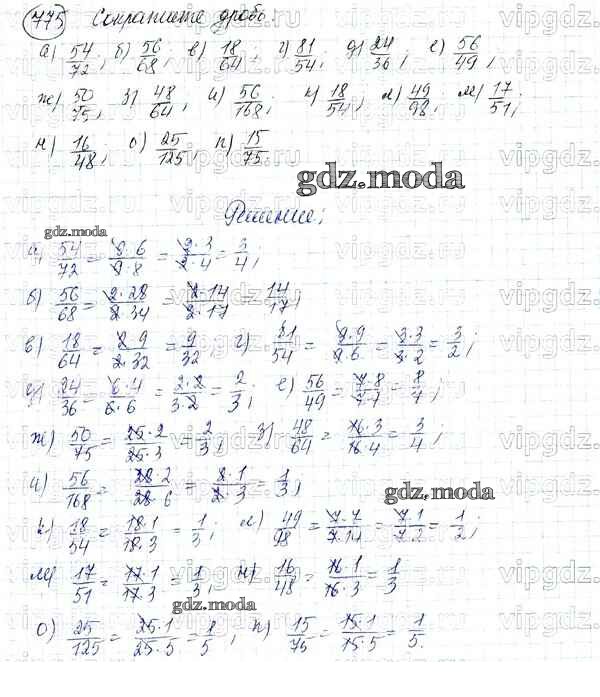 775 Сократите дробь:
а) 54/72; б) 56/68; в) 18/64; г) 81/54; д) 24/36; е) 56/49;
ж) 50/75; з) 48/64; и) 56/168; к) 18/54; л) 49/98; м) 17/51;
н) 16/48; о) 25/125; п) 15/75
gdz.moda
Решение:
gdz.moda
а) 54/72 = 9·6/9·8 = 2·3/2·4 = 3/4;
б) 56/68 = 2·28/2·34 = 2·14/2·17 = 14/17;
в) 18/64 = 2·9/2·32 = 9/32 г) 81/54 = 9·9/9·6 = 3·3/3·2 = 3/2;
д) 24/36 = 6·4/6·6 = 2·2/3·2 = 2/3; е) 56/49 = 7·8/7·7 = 8/7;
ж) 50/75 = 25·2/25·3 = 2/3; з) 48/64 = 16·3/16·4 = 3/4;
и) 56/168 = 28·2/28·6 = 2·1/2·3 = 1/3;
gdz.moda
к) 18/54 = 18·1/18·3 = 1/3; л) 49/98 = 7·7/7·14 = 7·1/7·2 = 1/2;
м) 17/51 = 17·1/17·3 = 1/3; н) 16/48 = 16·1/16·3 = 1/3
gdz.moda
о) 25/125 = 25·1/25·5 = 1/5; п) 15/75 = 15·1/15·5 = 1/5.